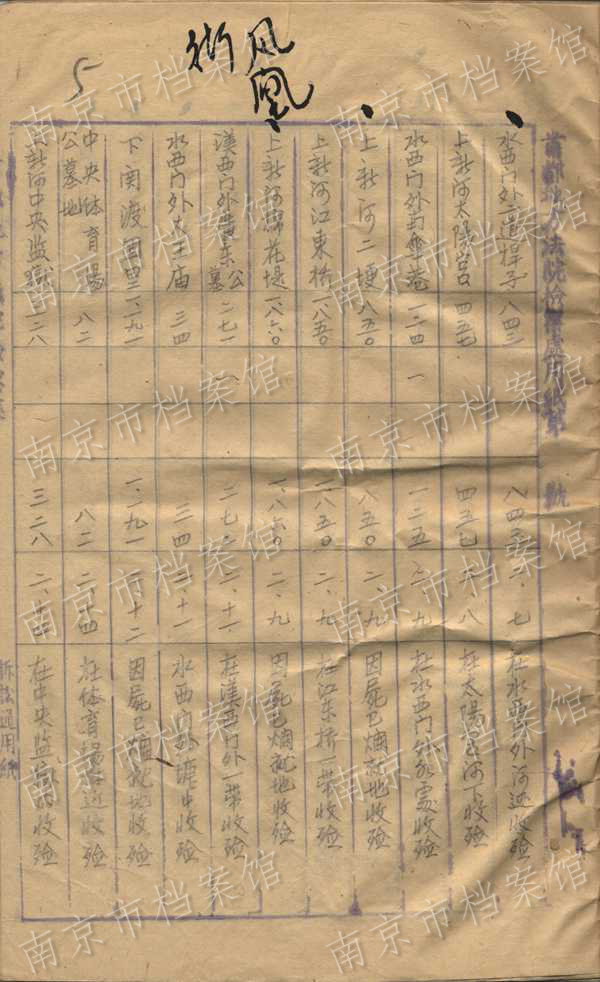 凤凰街
5
首都地方法院檢察處用紙第 號
水西门外二道桿子 八四三 八四三 二、七 在水西门外河边收殓
上新河太陽宫 四五七 四五七 二、八 在太陽宫河下收殓
水西门外南傘巷 一二四 一 一二五 二、九 在水西门外各處收殓
上新河二埂 八五〇 八五〇 二、九 因屍已爛就地收殓
上新河江東橋 一、八五〇 一、八五〇 二、九 在江东橋一带收殓
上新河棉花堤 一、八六〇 一、八六〇 二、九 因屍已爛就地收殓
漢西门外廣东公墓 二七一 一 二七二 二、十一 在漢西门外一带收殓
水西门外大王庙 三四 三四 二、十一 水西门外塘中收殓
下関渡固里 一、一九一 一、一九一 二、十二 因屍已爛就地收殓
中央体育場公墓地 八二 八二 二、十四 在体育場附近收殓
上新河中央监獄 三二八 三二八 二、十四 在中央监獄内收殓
訴訟通用紙
南京市档案馆